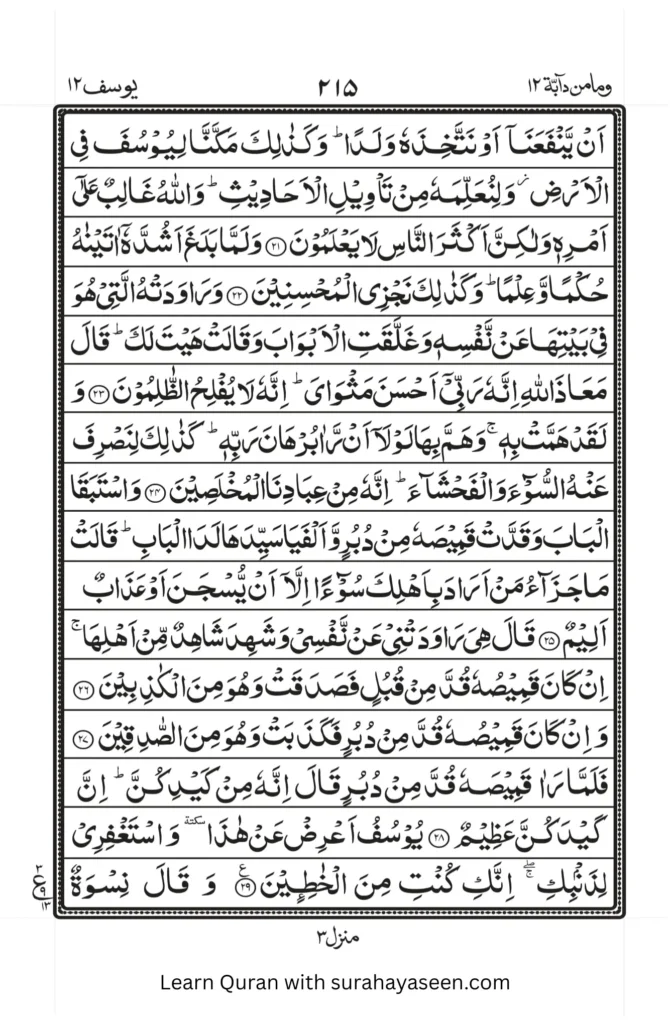 وما من دآبة ١٢
٢١٥
يوسف ١٢
اَنْ يَّنْفَعَنَاۤ اَوْ نَتَّخِذَهٗ وَلَدًا ؕ وَكَذٰلِكَ مَكَّنَّا لِيُوْسُفَ فِى
الْاَرْضِ ز وَلِنُعَلِّمَهٗ مِنْ تَاْوِيْلِ الْاَحَادِيْثِ ؕ وَاللّٰهُ غَالِبٌ عَلٰٓى
اَمْرِهٖ وَلٰكِنَّ اَكْثَرَ النَّاسِ لَا يَعْلَمُوْنَ ﴿۲۱﴾ وَلَمَّا بَلَغَ اَشُدَّهٗۤ اٰتَيْنٰهُ
حُكْمًا وَّعِلْمًا ؕ وَكَذٰلِكَ نَجْزِى الْمُحْسِنِيْنَ ﴿۲۲﴾ وَرَاوَدَتْهُ الَّتِىْ هُوَ
فِىْ بَيْتِهَا عَنْ نَّفْسِهٖ وَغَلَّقَتِ الْاَبْوَابَ وَقَالَتْ هَيْتَ لَكَ ؕ قَالَ
مَعَاذَ اللّٰهِ اِنَّهٗ رَبِّىْۤ اَحْسَنَ مَثْوَاىَ ؕ اِنَّهٗ لَا يُفْلِحُ الظّٰلِمُوْنَ ﴿۲۳﴾ وَ
لَقَدْ هَمَّتْ بِهٖ ۚ وَهَمَّ بِهَا لَوْلَاۤ اَنْ رَّاٰ بُرْهَانَ رَبِّهٖ ؕ كَذٰلِكَ لِنَصْرِفَ
عَنْهُ السُّوْٓءَ وَالْفَحْشَآءَ ؕ اِنَّهٗ مِنْ عِبَادِنَا الْمُخْلَصِيْنَ ﴿۲۴﴾ وَاسْتَبَقَا
الْبَابَ وَقَدَّتْ قَمِيْصَهٗ مِنْ دُبُرٍ وَّاَلْفَيَا سَيِّدَهَا لَدَا الْبَابِ ؕ قَالَتْ
مَا جَزَآءُ مَنْ اَرَادَ بِاَهْلِكَ سُوْٓءًا اِلَّاۤ اَنْ يُّسْجَنَ اَوْ عَذَابٌ
اَلِيْمٌ ﴿۲۵﴾ قَالَ هِىَ رَاوَدَتْنِىْ عَنْ نَّفْسِىْ وَشَهِدَ شَاهِدٌ مِّنْ اَهْلِهَا ۚ
اِنْ كَانَ قَمِيْصُهٗ قُدَّ مِنْ قُبُلٍ فَصَدَقَتْ وَهُوَ مِنَ الْكٰذِبِيْنَ ﴿۲۶﴾
وَاِنْ كَانَ قَمِيْصُهٗ قُدَّ مِنْ دُبُرٍ فَكَذَبَتْ وَهُوَ مِنَ الصّٰدِقِيْنَ ﴿۲۷﴾
فَلَمَّا رَاٰ قَمِيْصَهٗ قُدَّ مِنْ دُبُرٍ قَالَ اِنَّهٗ مِنْ كَيْدِكُنَّ ؕ اِنَّ
كَيْدَكُنَّ عَظِيْمٌ ﴿۲۸﴾ يُوْسُفُ اَعْرِضْ عَنْ هٰذَا سكتة وَاسْتَغْفِرِىْ
لِذَنْۢبِكِ ۖۚ اِنَّكِ كُنْتِ مِنَ الْخٰطِـِٕيْنَ ﴿۲۹﴾ ع وَقَالَ نِسْوَةٌ
٣
ع ٩
١٣
منزل ٣
Learn Quran with surahayaseen.com